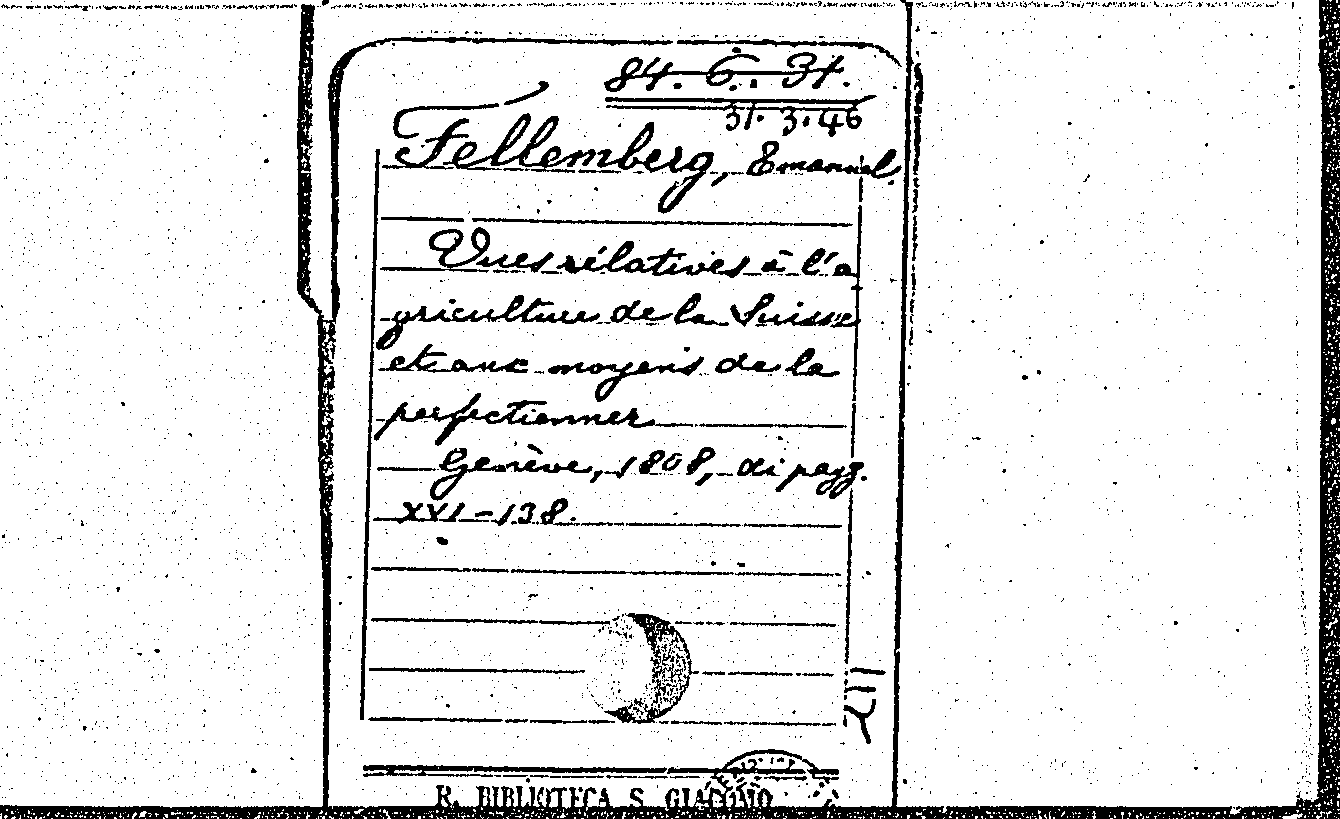 84. 6. 31.
31. 3. 46
Fellemberg, Emanuel.
Vues rélatives à l'a
griculture de la Suisse
et aux moyens de la
perfectionner
Genève, 1808, di pagg.
XVI-138.
R. BIBLIOTECA S. GIACOMO